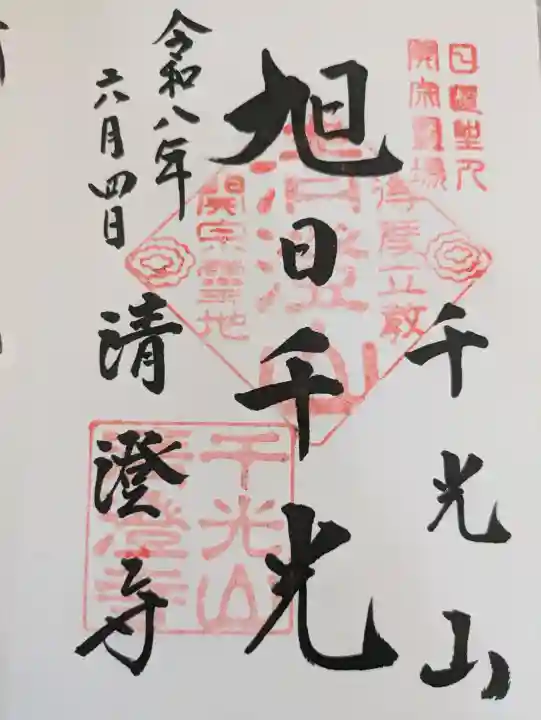 日蓮聖人
開宗霊場
千光山
旭日千光
得度立教
清澄山
開宗霊地
令和八年
六月四日
清澄寺
千光山
清澄寺